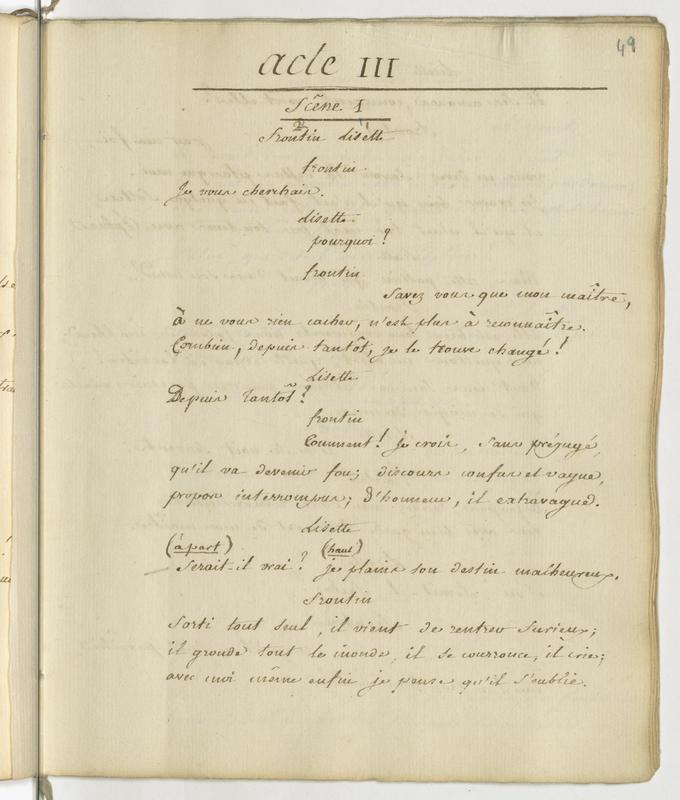 49
acte III
Scêne. 1
2 1
frontin lisette
frontin.
Je vous cherchais.
lisette.
pourquoi?
frontin
Savez vous que mon maître,
à ne vous rien cacher, n'est plus à reconnaître.
Combien, depuis tantôt, je le trouve changé!
Lisette
Depuis tantôt?
frontin
Comment! je crois, sans préjugé,
qu'il va devenir fou; discours confus et vague,
propos interrompus; d'honneur, il extravague.
Lisette
(à part) (haut)
Serait-il vrai? je plains son destin malheureux.
frontin
Sorti tout seul, il vient de rentrer furieux;
il gronde tout le monde, il se courrouce, il crie;
avec moi même enfin je pense qu'il s'oublie.